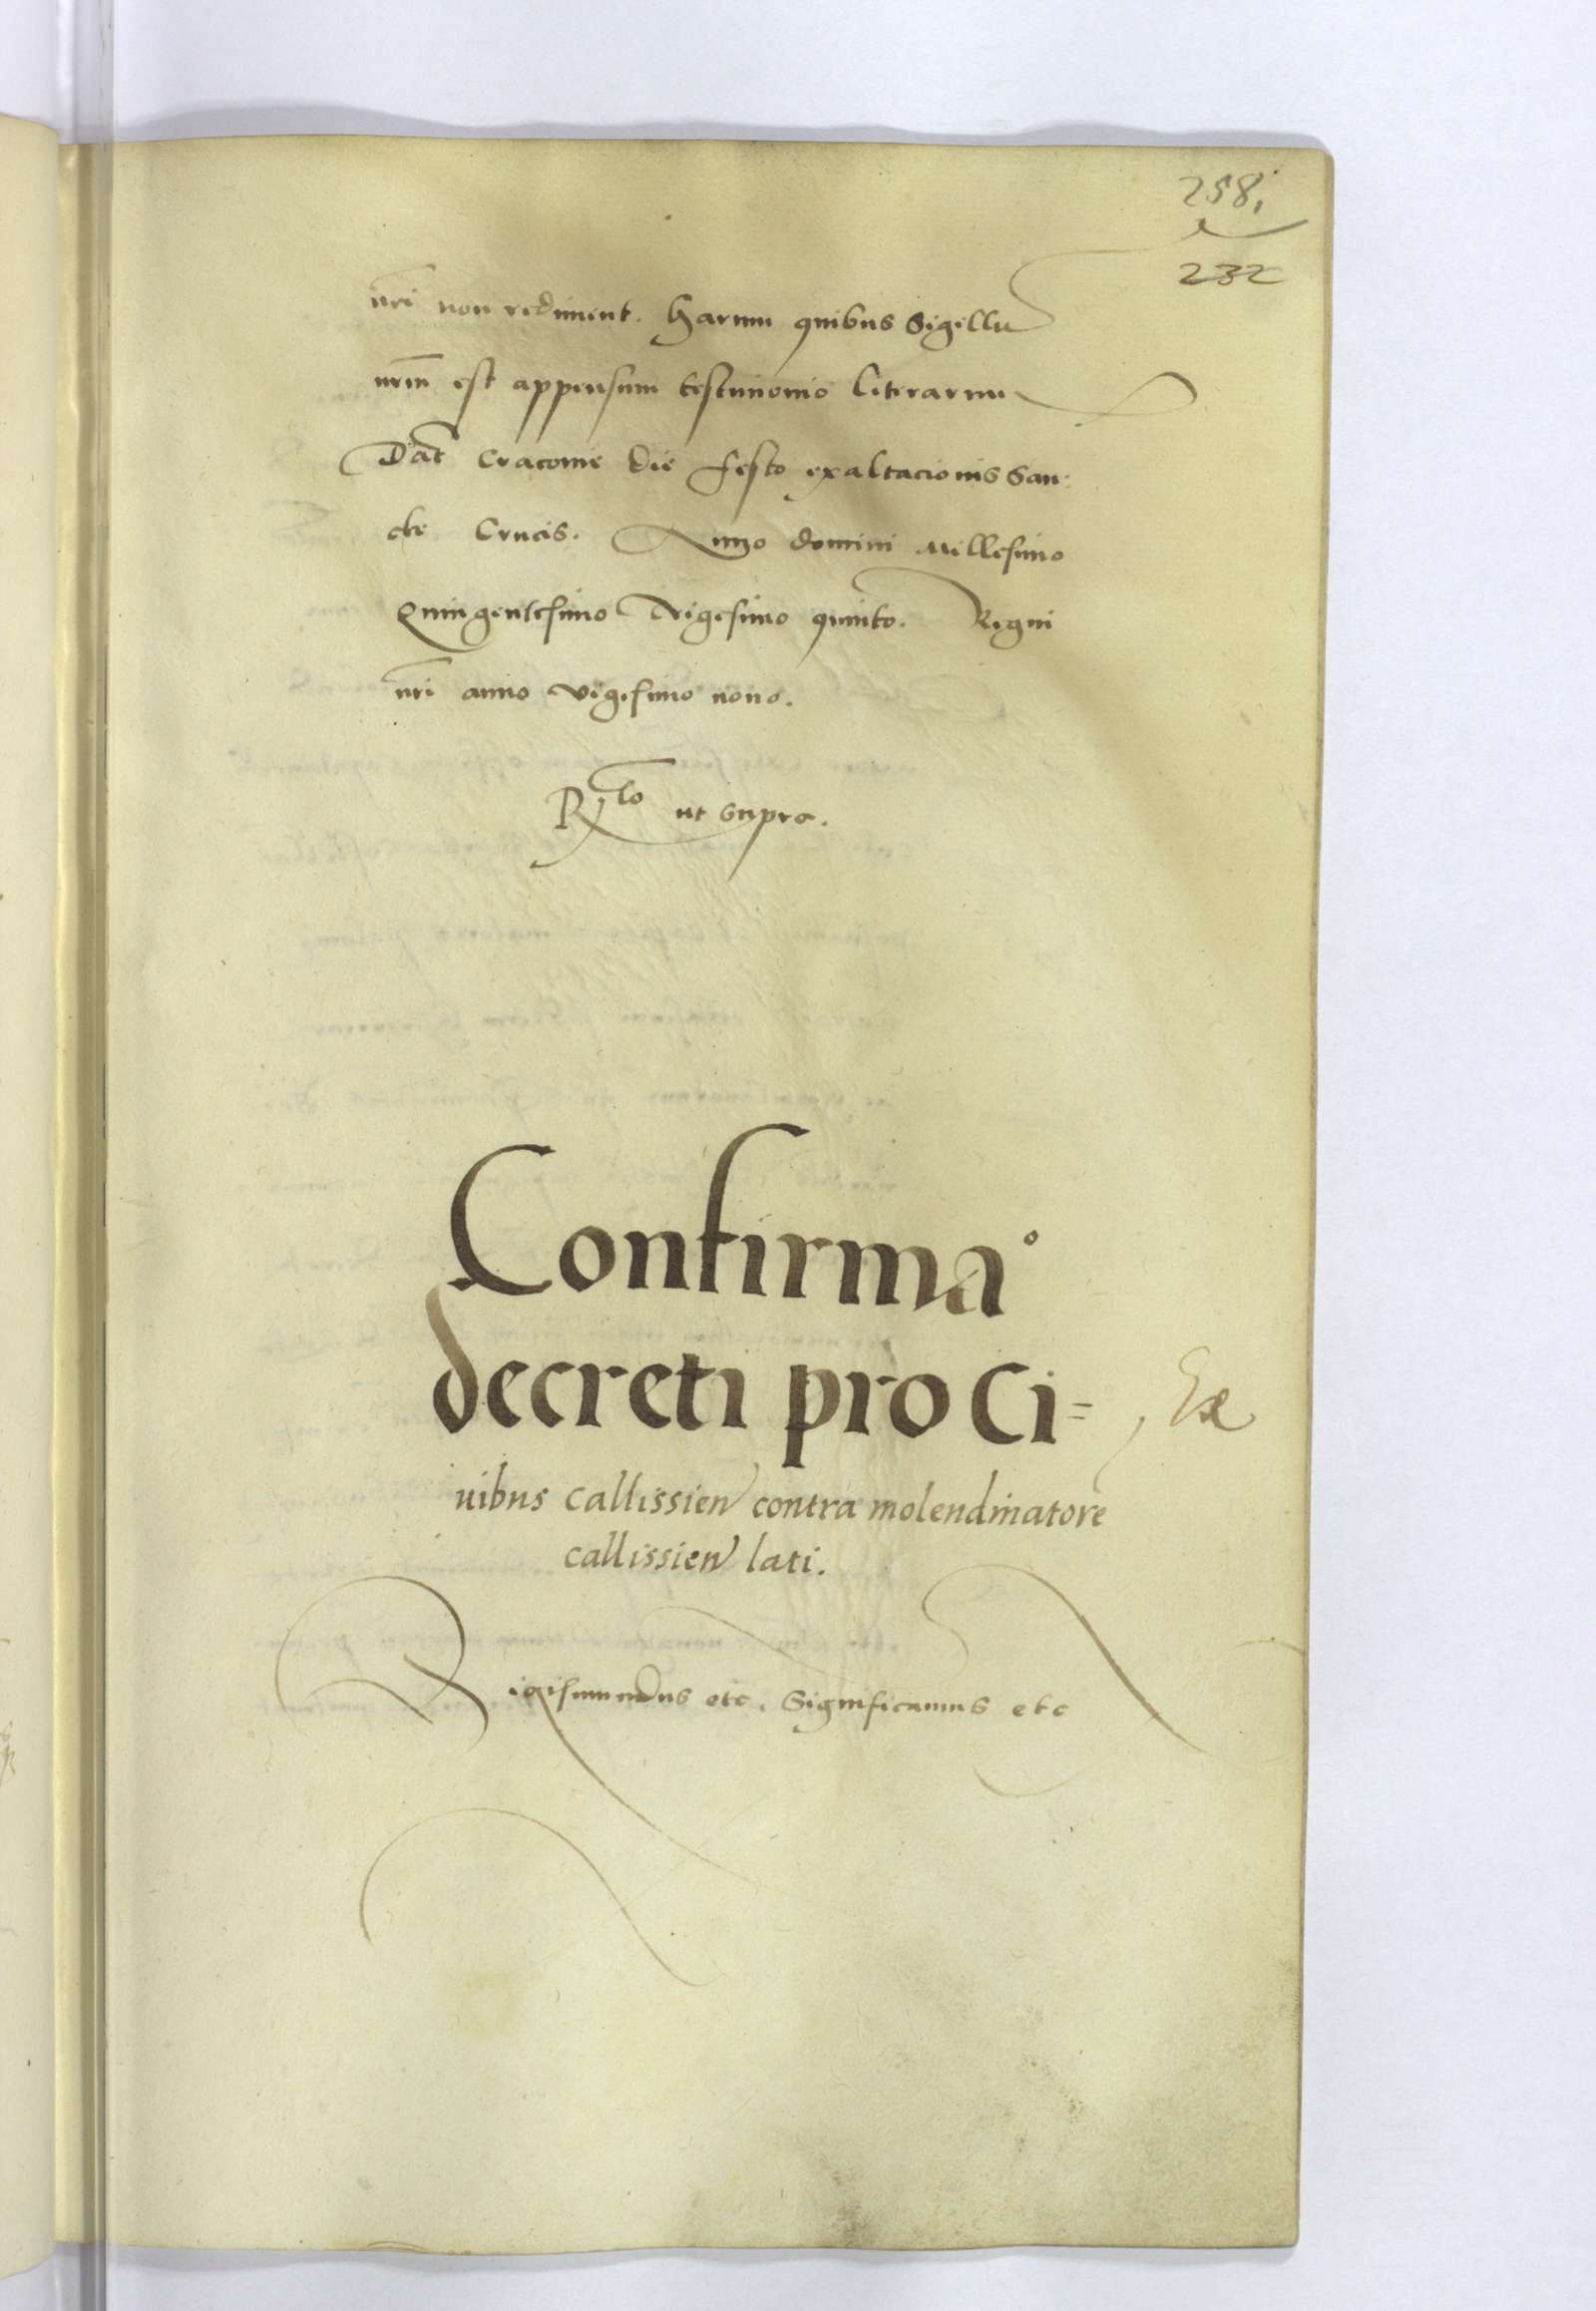 258.
232
nri non rediment. Harum quibus Sigillu
nrm est appensum testimonio literarum
Dat Cracovie die festo exaltacionis San:
cte Crucis. Anno domini Millesimo
Quingentesimo Vigesimo quinto. Regni
nri anno vigesimo nono.
Rlo ut supra.
Confirmaº
decreti pro Ci=
Ex
uibus callissien contra molendinatore
callissien lati.
Sigismundus etc. Significamus etc